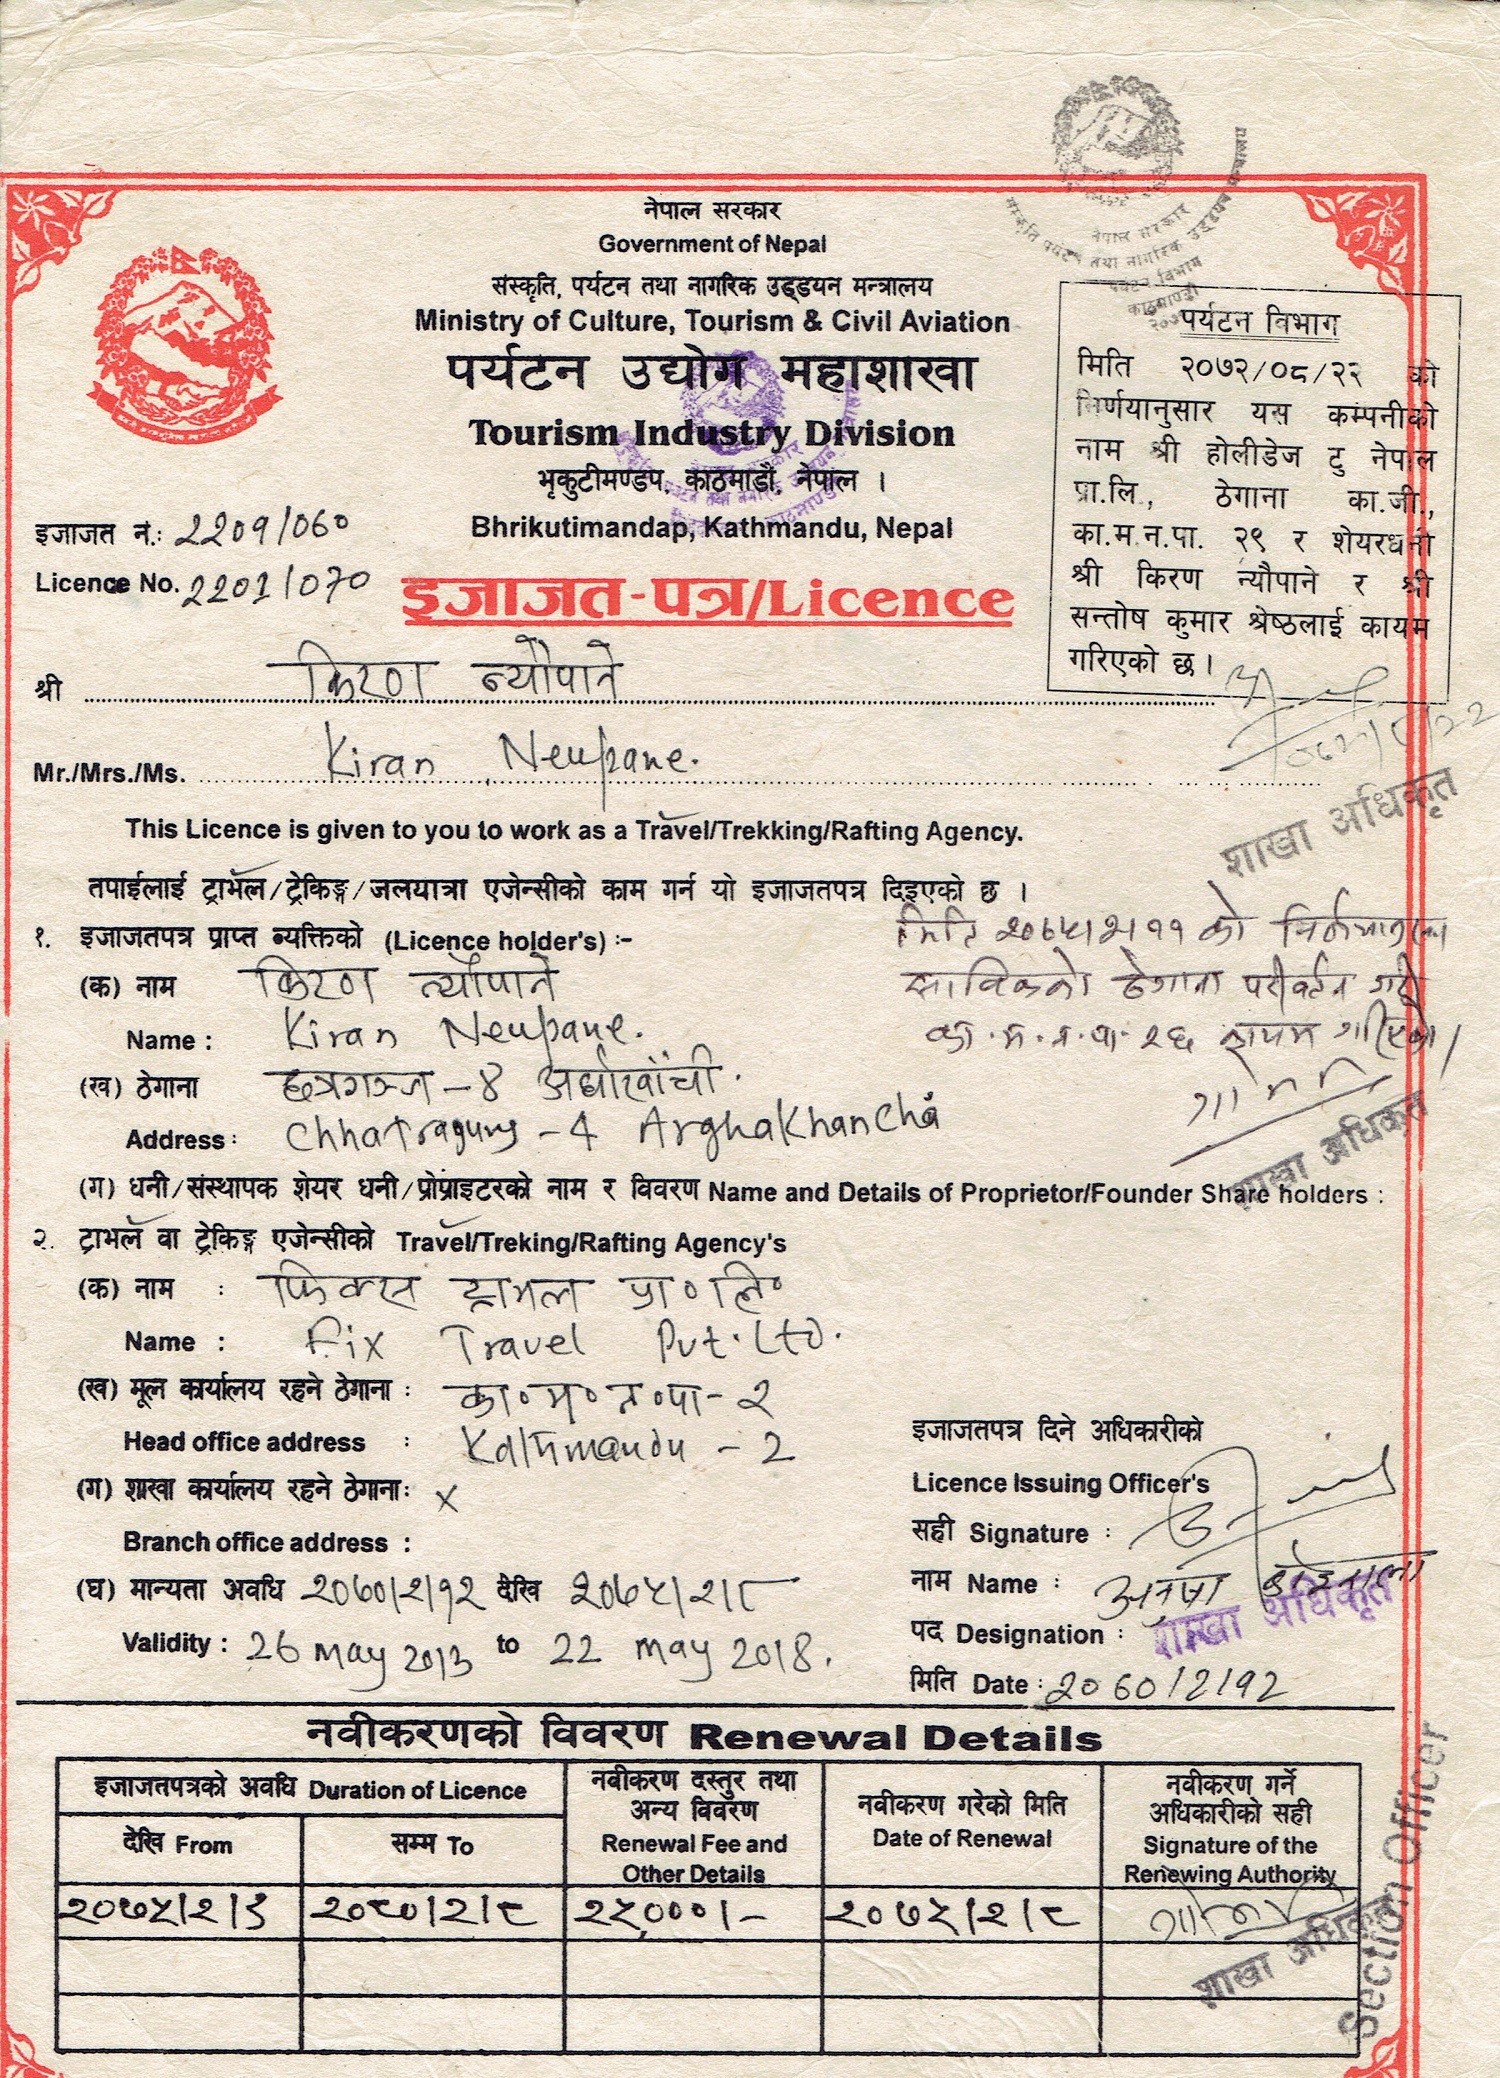 नेपाल सरकार
Government of Nepal
संस्कृति, पर्यटन तथा नागरिक उड्डयन मन्त्रालय
Ministry of Culture, Tourism & Civil Aviation
पर्यटन उद्योग महाशाखा
Tourism Industry Division
भृकुटीमण्डप, काठमाडौं, नेपाल ।
Bhrikutimandap, Kathmandu, Nepal
नेपाल सरकार
संस्कृति पर्यटन तथा नागरिक उड्डयन मन्त्रालय
पर्यटन विभाग
काठमाण्डौ
पर्यटन विभाग
मिति २०७२/०८/२२ को
निर्णयानुसार यस कम्पनीको
नाम श्री होलीडेज टु नेपाल
प्रा.लि., ठेगाना का.जी.,
का.म.न.पा. २९ र शेयरधनी
श्री किरण न्यौपाने र श्री
सन्तोष कुमार श्रेष्ठलाई कायम
गरिएको छ ।
शाखा अधिकृत
इजाजत नं.: २२०१/०७०
Licence No. 2201/070
इजाजत-पत्र/Licence
श्री किरण न्यौपाने
Mr./Mrs./Ms. Kiran Neupane.
This Licence is given to you to work as a Travel/Trekking/Rafting Agency.
तपाईलाई ट्राभॅल/ट्रेकिङ्ग/जलयात्रा एजेन्सीको काम गर्न यो इजाजतपत्र दिइएको छ ।
मिति २०७५/२/११ को निर्णयानुसार
साविकको ठेगाना परीवर्तन गरी
का.म.न.पा. २६ कायम गरिएको ।
शाखा अधिकृत
१. इजाजतपत्र प्राप्त व्यक्तिको (Licence holder's) :-
(क) नाम किरण न्यौपाने
Name : Kiran Neupane.
(ख) ठेगाना छत्रगञ्ज - ४ अर्घाखाँची.
Address : Chhatragunj - 4 Arghakhanchi
(ग) धनी/संस्थापक शेयर धनी/प्रोप्राइटरको नाम र विवरण Name and Details of Proprietor/Founder Share holders :
२. ट्राभॅल वा ट्रेकिङ्ग एजेन्सीको Travel/Treking/Rafting Agency's
(क) नाम : फिक्स ट्राभल प्रा॰लि॰
Name : Fix Travel Pvt. Ltd.
(ख) मूल कार्यालय रहने ठेगाना : का॰म॰न॰पा - २
Head office address : Kathmandu - 2
(ग) शाखा कार्यालय रहने ठेगाना: x
Branch office address :
(घ) मान्यता अवधि २०७०/२/१२ देखि २०७५/२/८
Validity : 26 may 2013 to 22 may 2018.
इजाजतपत्र दिने अधिकारीको
Licence Issuing Officer's
सही Signature :
नाम Name :
पद Designation : शाखा अधिकृत
मिति Date : २०७०/२/१२
नवीकरणको विवरण Renewal Details
इजाजतपत्रको अवधि Duration of Licence
देखि From
सम्म To
नवीकरण दस्तुर तथा
अन्य विवरण
Renewal Fee and
Other Details
नवीकरण गरेको मिति
Date of Renewal
नवीकरण गर्ने
अधिकारीको सही
Signature of the
Renewing Authority
२०७५/२/९ २०८०/२/८ २५०००/- २०७५/२/८
शाखा अधिकृत
Section Officer